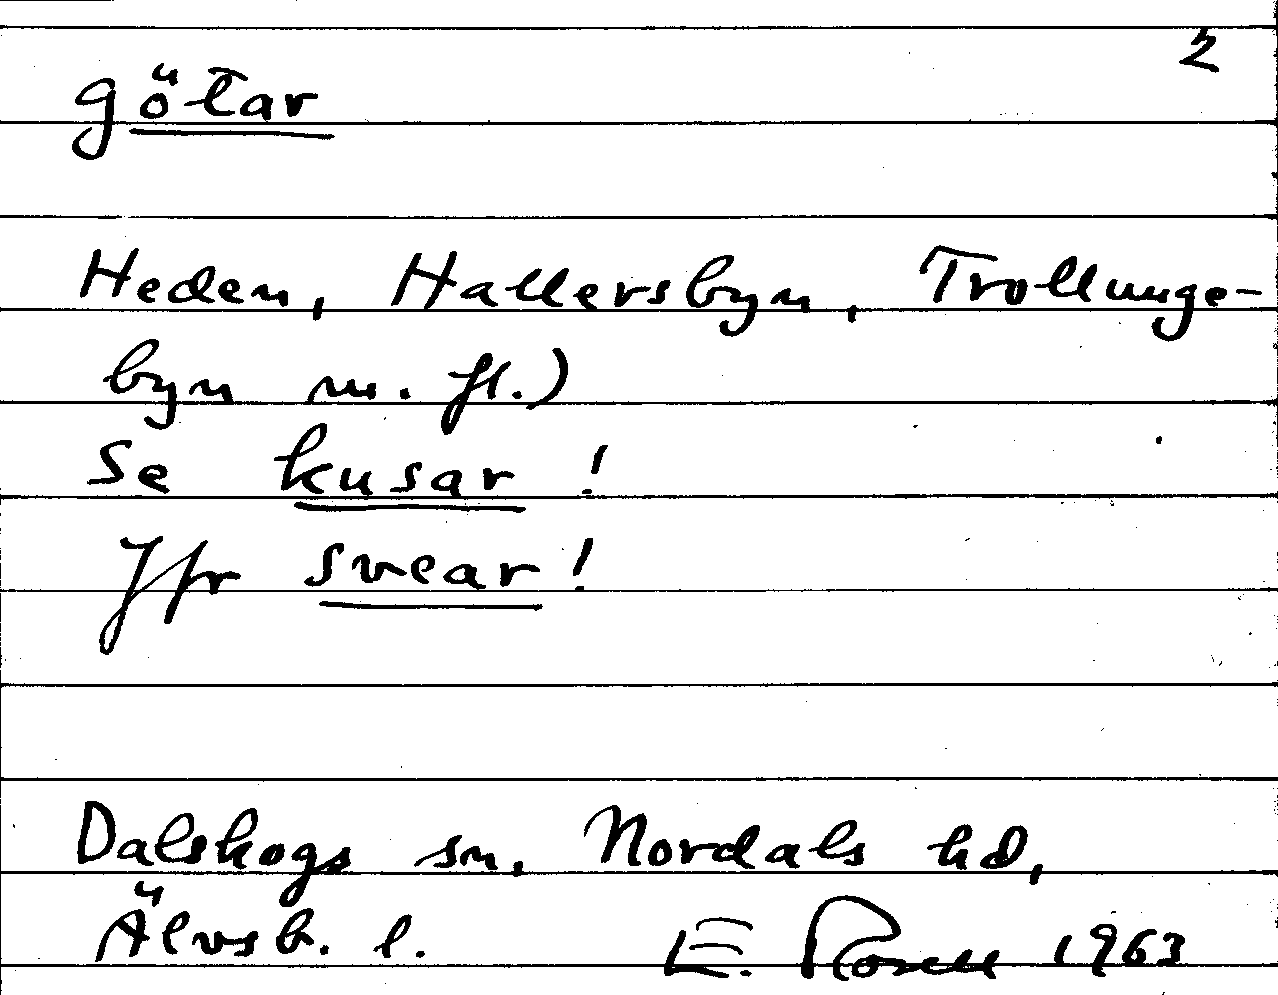 2
götar
Heden, Hallersbyn, Trollunge-
byn m. fl.)
Se kusar!
Jfr svear!
Dalskogs sn, Nordals hd,
Älvsb. l. E. Rosell 1963